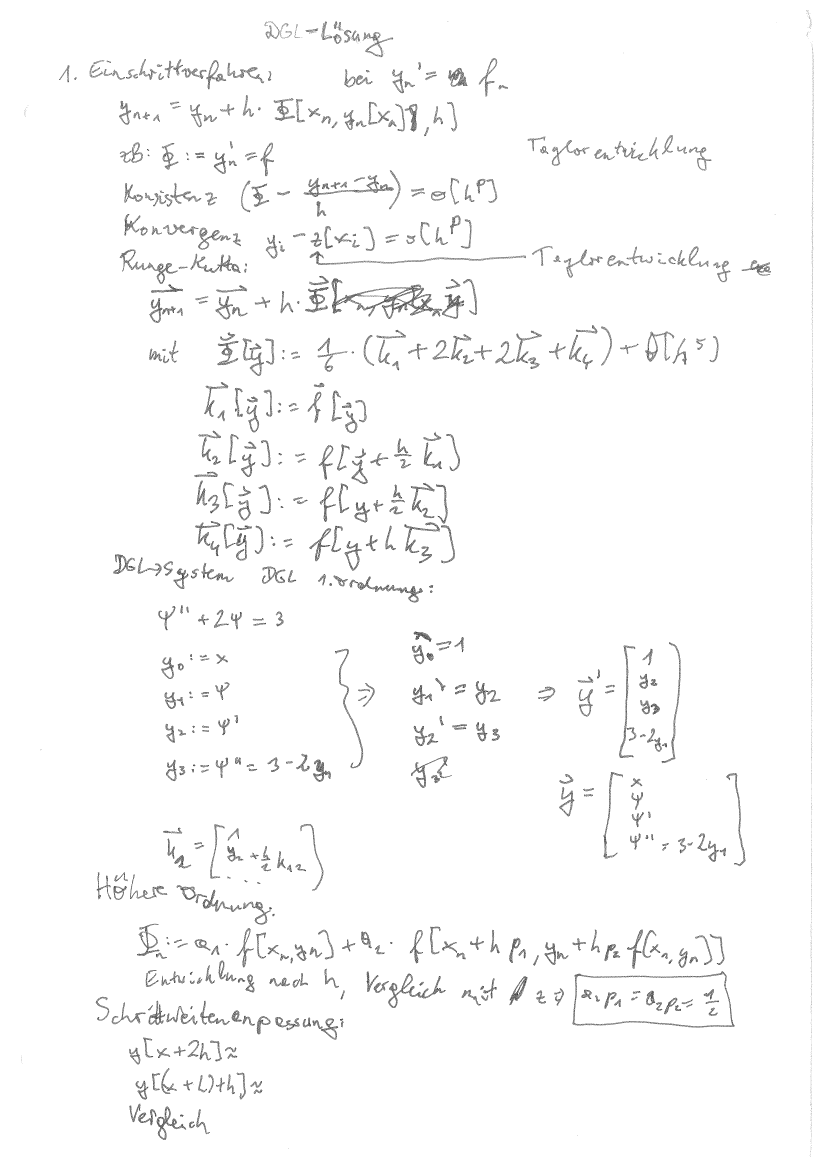 DGL-Lösung
1. Einschrittverfahren: bei yₙ' = fₙ
yₙ₊₁ = yₙ + h · Φ[xₙ, yₙ[xₙ], h]
zB: Φ := yₙ' = f
Taylorentwicklung
Konsistenz (Φ - (yₙ₊₁ - yₙ)/h) = O[hᵖ]
Konvergenz yᵢ - z[xᵢ] = O[hᵖ]
Runge-Kutta: Taylorentwicklung
y⃗ₙ₊₁ = y⃗ₙ + h · Φ⃗
mit Φ⃗[y⃗] := 1/6 · (k⃗₁ + 2k⃗₂ + 2k⃗₃ + k⃗₄) + O[h⁵]
k⃗₁[y⃗] := f⃗[y⃗]
k⃗₂[y⃗] := f[y⃗ + h/2 k⃗₁]
k⃗₃[y⃗] := f[y + h/2 k⃗₂]
k⃗₄[y⃗] := f[y + h k⃗₃]
DGL→System DGL 1. Ordnung:
Ψ'' + 2Ψ = 3
y₀ := x
y₁ := Ψ
y₂ := Ψ'
y₃ := Ψ'' = 3 - 2y₁
} ⇒
y₀' = 1
y₁' = y₂
y₂' = y₃
⇒ y⃗' = [1
y₂
y₃
3-2y₁]
y⃗ = [x
Ψ
Ψ'
Ψ'' = 3-2y₁]
k⃗₂ = [1
y₂ + h/2 k₁₂
...]
Höhere Ordnung:
Φₙ := a₁ · f[xₙ, yₙ] + a₂ · f[xₙ + h p₁, yₙ + h p₂ f(xₙ, yₙ)]
Entwicklung nach h, Vergleich mit z ⇒ a₂p₁ = a₂p₂ = 1/2
Schrittweitenanpassung:
y[x+2h] ≈
y[(x+h)+h] ≈
Vergleich